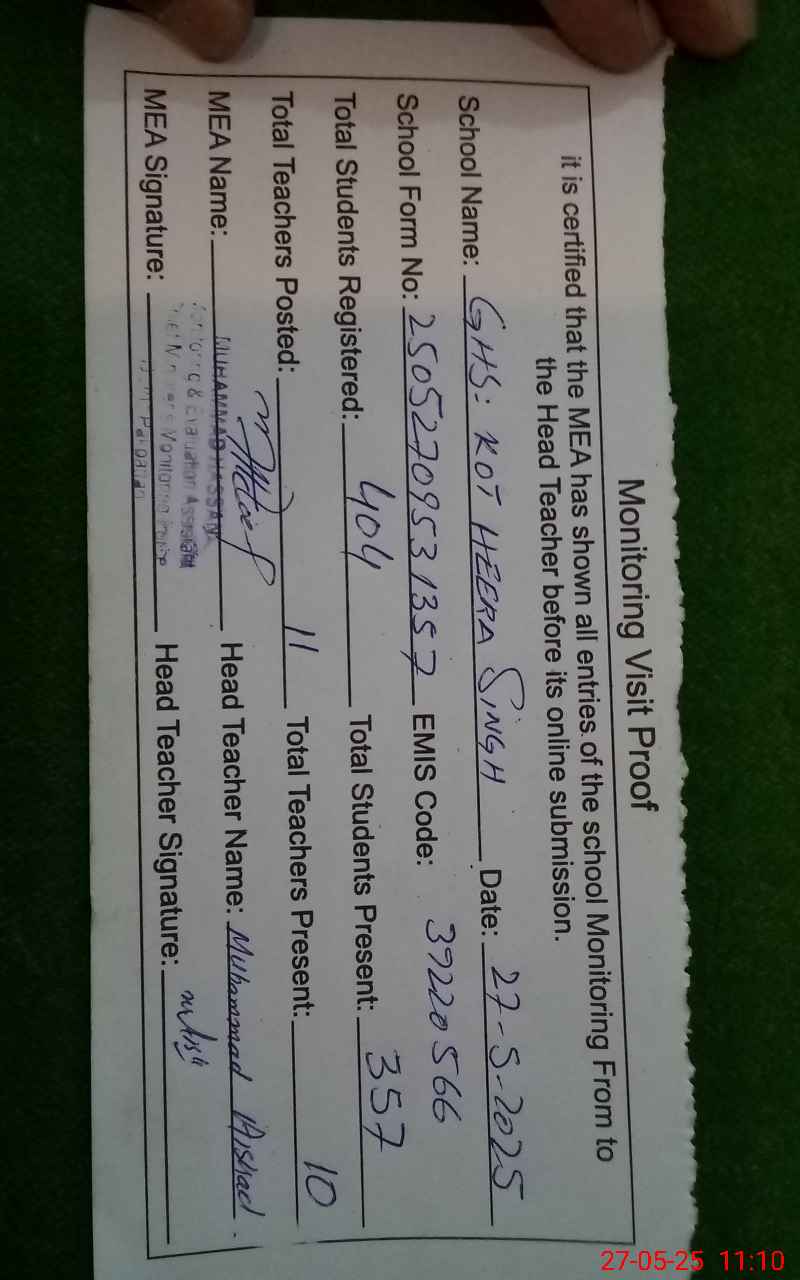 Monitoring Visit Proof
it is certified that the MEA has shown all entries of the school Monitoring From to
the Head Teacher before its online submission.
School Name: GHS: KOT HEERA SINGH Date: 27-5-2025
School Form No: 25052709531357 EMIS Code: 39220566
Total Students Registered: 404 Total Students Present: 357
Total Teachers Posted: 11 Total Teachers Present: 10
MEA Name: MUHAMMAD HASSAN Head Teacher Name: Muhammad Arshad
Monitoring & Evaluation Assistant
MEA Signature: Head Teacher Signature:
27-05-25 11:10